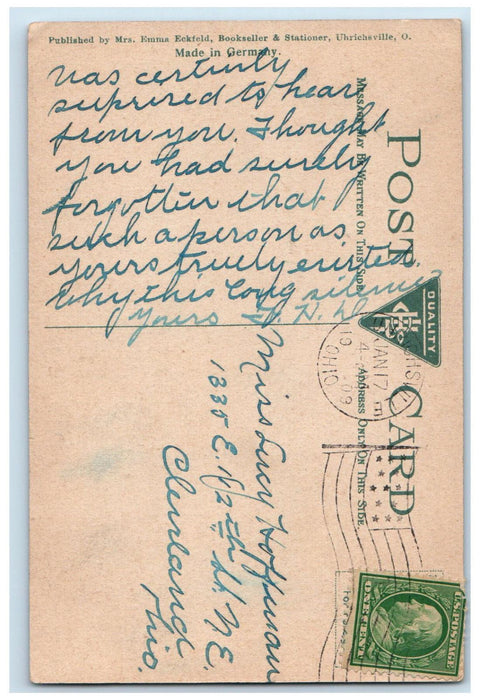 Published by Mrs. Emma Eckfeld, Bookseller & Stationer, Uhrichsville, O.
Made in Germany.
was certinly
suprised to hear
from you. Thought
you had surely
forgotten that
such a person as
yours truely existed.
Why this long silence
Yours
POST CARD
MESSAGE MAY BE WRITTEN ON THIS SIDE
ADDRESS ONLY ON THIS SIDE.
QUALITY
JAN 17
OHIO
Miss Lucy Hoffman
1335 E. St. N.E.
Cleveland
Ohio.
U.S. POSTAGE
ONE CENT